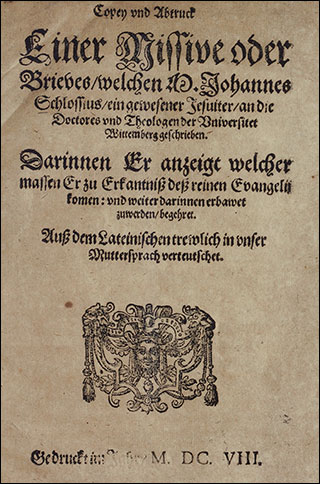 Copey vnd Abtruck
Einer Missive oder
Brieves/welchen M. Johannes
Schlossius/ein gewesener Jesuiter/an die
Doctores vnd Theologen der Vniversitet
Wittemberg geschrieben.
Darinnen Er anzeigt welcher
massen Er zu Erkantniß deß reinen Evangelij
komen: vnd weiter darinnen erbawet
zuwerden/begehret.
Auß dem Lateinischen trewlich in vnser
Muttersprach verteutschet.
Gedruckt im M. DC. VIII.